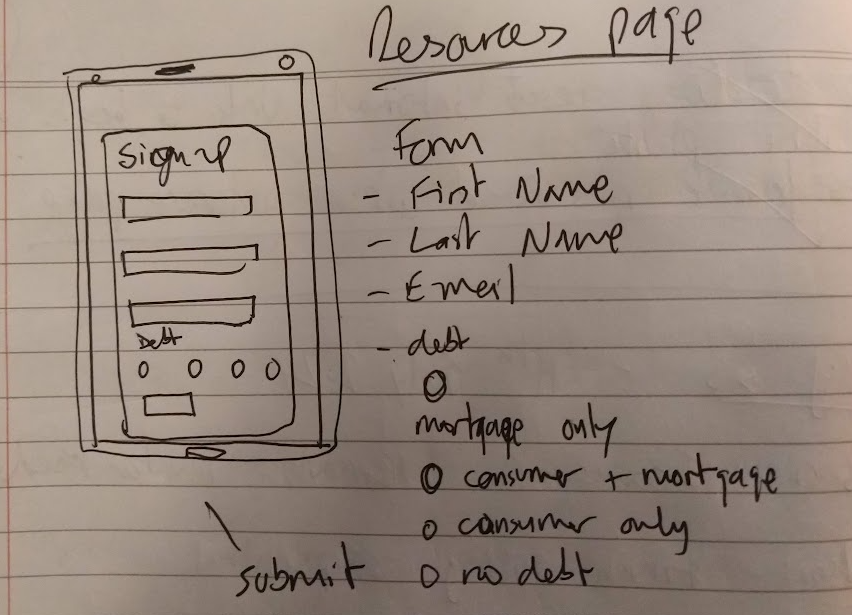 Resources page
Sign up
Debt
Form
- First Name
- Last Name
- Email
- debt
mortgage only
consumer + mortgage
consumer only
no debt
submit